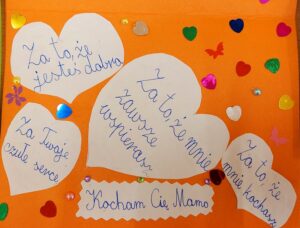 Za to, że
jesteś dobra
Za to, że mnie
zawsze
wspierasz
Za Twoje
czułe serce
Za to, że
mnie kochasz
Kocham Cię Mamo